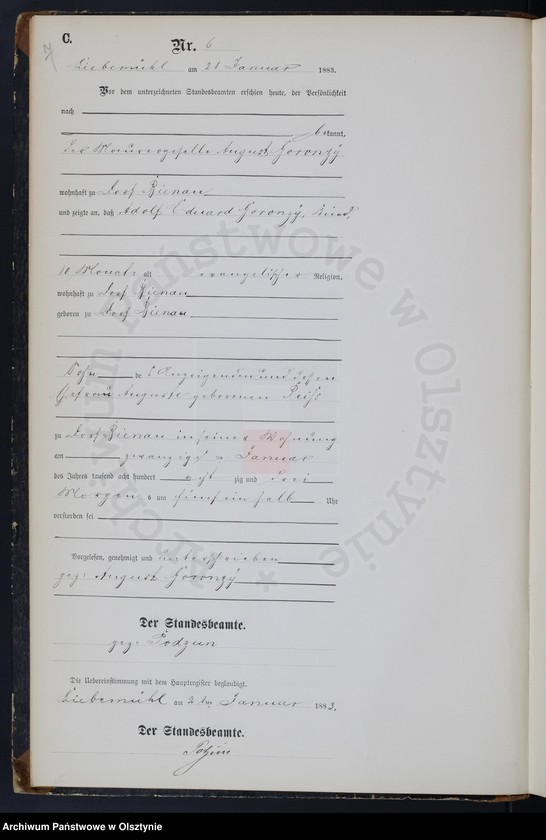 C.
Nr. 6
Liebemühl am 21 Januar 1883.
Vor dem unterzeichneten Standesbeamten erschien heute, der Persönlichkeit
nach
bekannt,
der Maurergeselle August Goronzÿ
wohnhaft zu Dorf Bienau
und zeigte an, daß Adolf Eduard Goronzÿ, Kind,
10 Monate alt evangelischer Religion,
wohnhaft zu Dorf Bienau
geboren zu Dorf Bienau
Sohn des Anzeigenden und dessen
Ehefrau Auguste geborenen
zu Dorf Bienau in seiner Wohnung
am zwanzigsten Januar
des Jahres tausend acht hundert acht zig und drei
Morgens um fünf ein halb Uhr
verstorben sei
Vorgelesen, genehmigt und unterschrieben
gez. August Goronzÿ
Der Standesbeamte.
gez. Podzun
Die Uebereinstimmung mit dem Hauptregister beglaubigt.
Liebemühl am 21ten Januar 1883.
Der Standesbeamte.
Archiwum Państwowe w Olsztynie
Archiwum Państwowe w Olsztynie